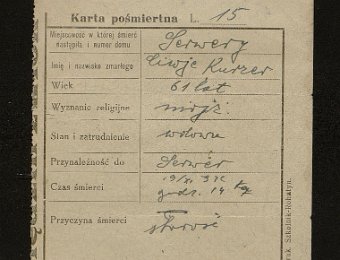 Karta pośmiertna L. 15
Miejscowość w której śmierć
nastąpiła i numer domu
Serwery
Imię i nazwisko zmarłego
Kurzer
Wiek
61 lat
Wyznanie religijne
mojż:
Stan i zatrudnienie
wdowa
Przynależność do
Serwer
Czas śmierci
godz. 14
Przyczyna śmierci
starość
ruk. Szkolnik-Rohatyn.